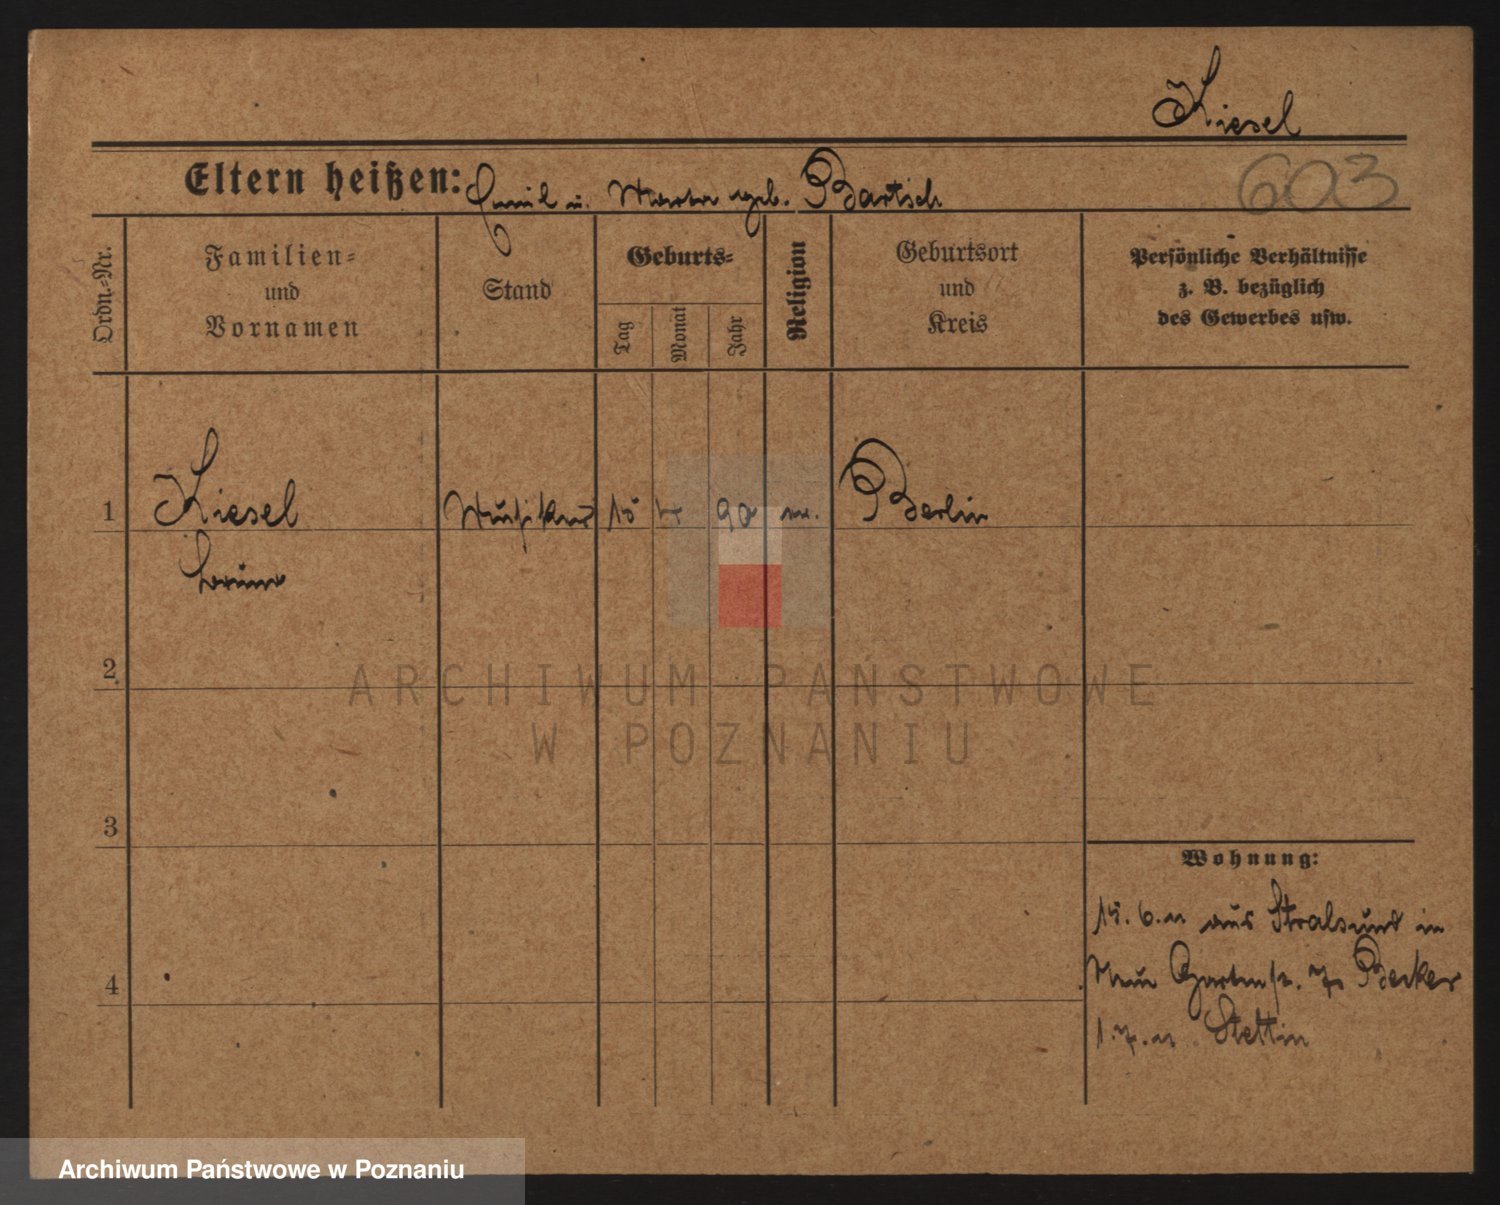 Kiesel
Eltern heißen: Emil u. Marta geb. Bartsch
603
Ordn.-Nr.
Familien-
und
Vornamen
Stand
Geburts-
Tag
Monat
Jahr
Religion
Geburtsort
und
Kreis
Persönliche Verhältnisse
z. B. bezüglich
des Gewerbes usw.
1
Kiesel
Musiker
15
90
Berlin
Bruno
2
ARCHIWUM PAŃSTWOWE
W POZNANIU
3
4
Wohnung:
15. 6. 11 aus Stralsund in
Neue Gartenstr. Becker
1. 7. 11 Stettin
Archiwum Państwowe w Poznaniu